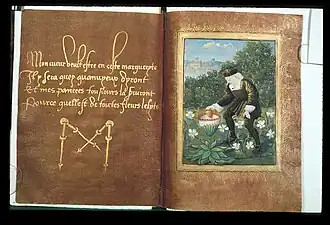 Mon cueur veult estre en ceste marguerite
Il y sera quoy quamuieux dyront
Et mes pancees tousiours la suiuront
Pource quelle est de toutes fleurs leslyte